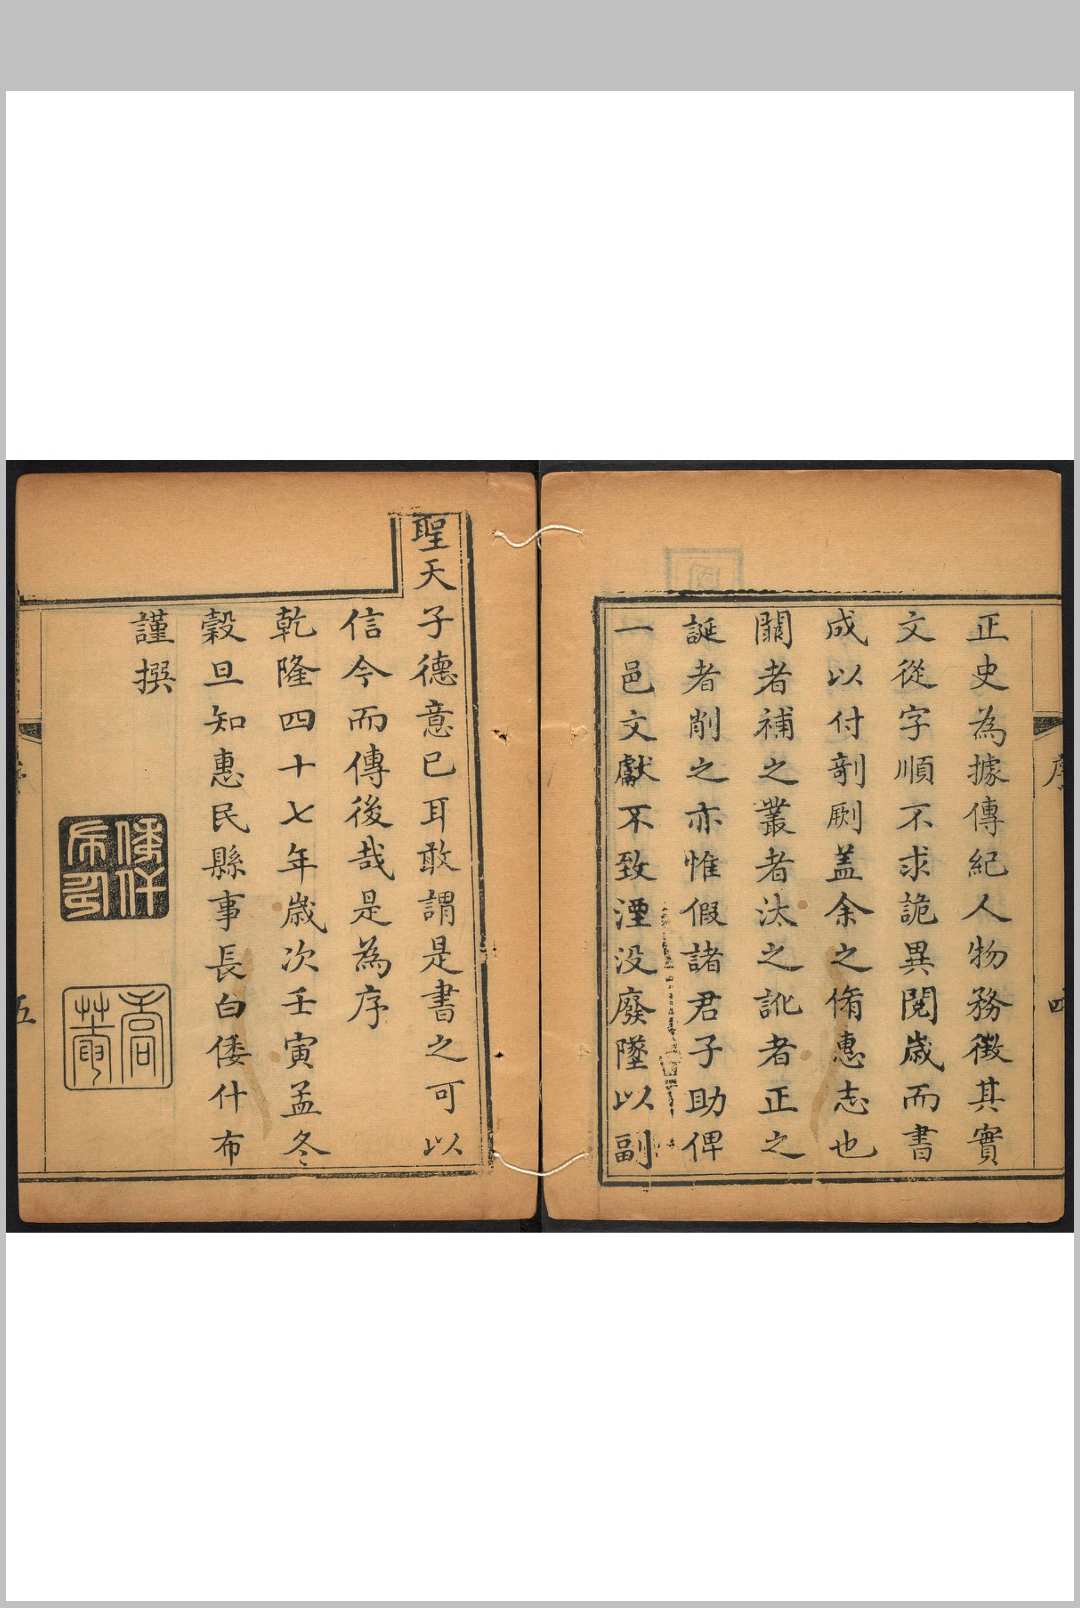 正史為據傳紀人物務徵其實
文從字順不求詭異閱歲而書
成以付剞劂盖余之脩惠志也
闕者補之叢者汰之訛者正之
誕者削之亦惟假諸君子助俾
一邑文獻不致湮没廢墜以副
聖天子德意已耳敢謂是書之可以
信今而傳後哉是為序
乾隆四十七年歲次壬寅孟冬
穀旦知惠民縣事長白倭什布
謹撰
倭什布印
序
五